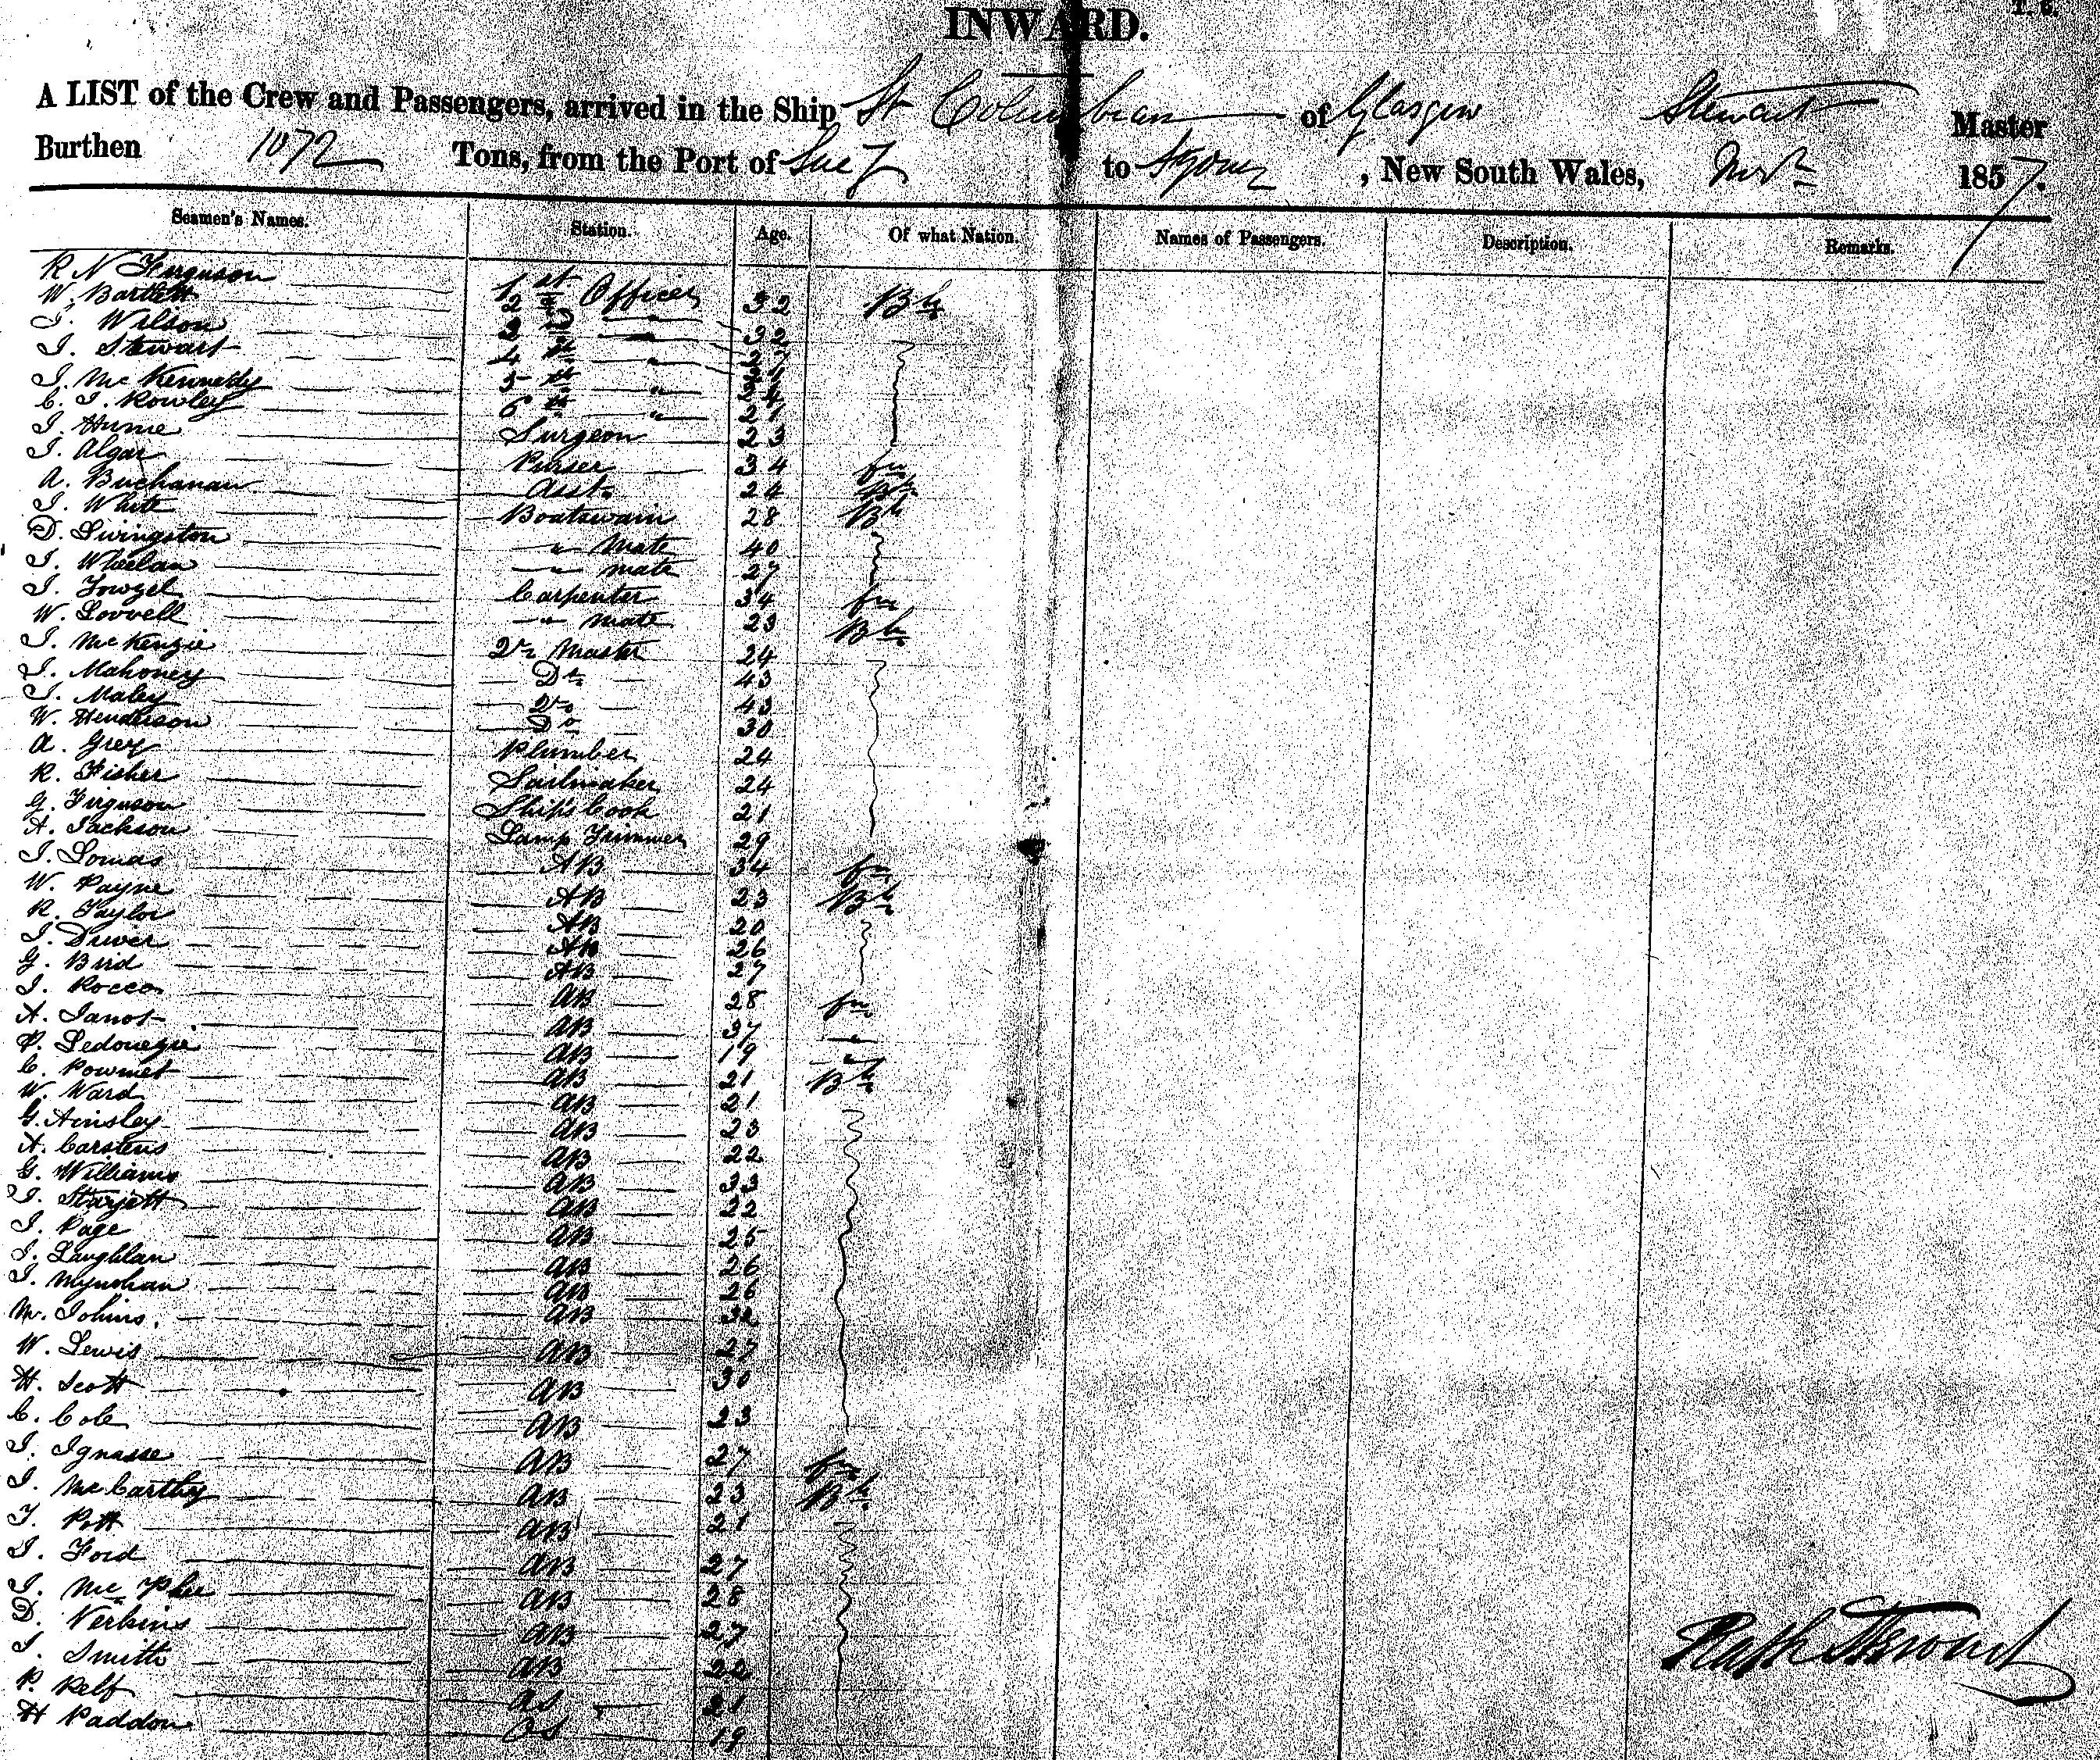 INWARD.
A LIST of the Crew and Passengers, arrived in the Ship St Columbian of Glasgow Stewart Master
Burthen 1072 Tons, from the Port of Suez to Sydney, New South Wales, Novr 1857.
Seamen's Names. Station. Age. Of what Nation. Names of Passengers. Description. Remarks.
R N Ferguson 1st Officer 32 Bh
W. Bartlett 2nd " 32
J. Wilson 3rd "
J. Stewart 4th "
J. McKennedy 5th "
C. J. Rowley 6th " 21
J. Hume Surgeon 23
J. Algar Purser 34 fn
A. Buchanan Asst. 24 Bh
J. White Boatswain 28 Bh
D. Livingston " Mate 40
J. Wheelan " mate 27
J. Fowzel Carpenter 34 fn
W. Lovvell " mate 23 Bh
J. McKenzie Qr Master 24
J. Mahoney Do 43
J. Maley Do 42
W. Henderson Do 30
A. Grey Plumber 24
R. Fisher Sailmaker 24
G. Ferguson Ship's Cook 21
A. Jackson Lamp Trimmer 29
J. Lomas AB 34 fn
W. Payne AB 23 Bh
R. Taylor AB 20
J. Duver AB 26
G. Bird AB 27
J. Rocco AB 28 fn
A. Janot AB 37 "
P. Ledonegre AB 19 "
C. Pownet AB 21 Bh
W. Ward AB 21
G. Ainsley AB 23
A. Carstens AB 22
G. Williams AB 33
J. Starjett AB 22
J. Page AB 25
J. Laughlan AB 26
J. Mynohan AB 26
M. Johins. AB 32
W. Lewis AB 27
H. Scott AB 30
C. Cole AB 23
J. Ignasse AB 27 fn
J. McCarthy AB 23 Bh
T. Pitt AB 21
J. Ford AB 27
J. McPhee AB 28
D. Nerkins AB 27
J. Smith AB 22
P. Relf OS 21
H Paddon OS 19
Ralph Stewart